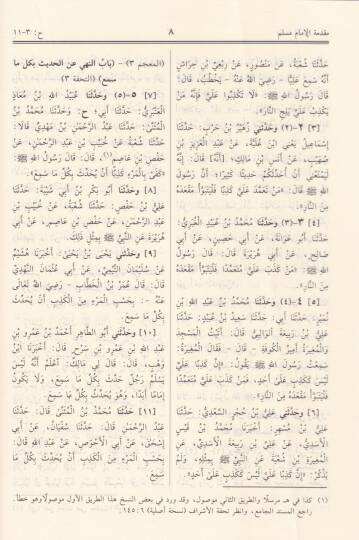 مقدمة الإمام مسلم
٨
ح: ٣-١١
حَدَّثَنَا شُعْبَةُ، عَنْ مَنْصُورٍ، عَنْ رِبْعِيِّ بْنِ حِرَاشٍ
أَنَّهُ سَمِعَ عَلِيًّا - رَضِيَ اللهُ عَنْهُ - يَخْطُبُ، قَالَ:
قَالَ رَسُولُ اللهِ ﷺ: «لَا تَكْذِبُوا عَلَيَّ فَإِنَّهُ مَنْ
يَكْذِبْ عَلَيَّ يَلِجِ النَّارَ».
[٣] ٢-(٢) وَحَدَّثَنِي زُهَيْرُ بْنُ حَرْبٍ: حَدَّثَنَا
إِسْمَاعِيلُ يَعْنِي ابْنَ عُلَيَّةَ، عَنْ عَبْدِ الْعَزِيزِ بْنِ
صُهَيْبٍ، عَنْ أَنَسِ بْنِ مَالِكٍ؛ [أَنَّهُ] قَالَ: إِنَّهُ
لَيَمْنَعُنِي أَنْ أُحَدِّثَكُمْ حَدِيثًا كَثِيرًا: أَنَّ رَسُولَ
اللهِ ﷺ قَالَ: «مَنْ تَعَمَّدَ عَلَيَّ كَذِبًا فَلْيَتَبَوَّأْ مَقْعَدَهُ
مِنَ النَّارِ».
[٤] ٣-(٣) وَحَدَّثَنَا مُحَمَّدُ بْنُ عُبَيْدٍ الْغُبَرِيُّ:
حَدَّثَنَا أَبُو عَوَانَةَ، عَنْ أَبِي حَصِينٍ، عَنْ أَبِي
صَالِحٍ، عَنْ أَبِي هُرَيْرَةَ قَالَ: قَالَ رَسُولُ اللهِ
ﷺ: «مَنْ كَذَبَ عَلَيَّ مُتَعَمِّدًا فَلْيَتَبَوَّأْ مَقْعَدَهُ
مِنَ النَّارِ».
[٥] ٤-(٤) وَحَدَّثَنَا مُحَمَّدُ بْنُ عَبْدِ اللهِ بْنِ
نُمَيْرٍ: حَدَّثَنَا أَبِي: حَدَّثَنَا سَعِيدُ بْنُ عُبَيْدٍ: حَدَّثَنَا
عَلِيُّ بْنُ رَبِيعَةَ الْوَالِبِيُّ قَالَ: أَتَيْتُ الْمَسْجِدَ
وَالْمُغِيرَةُ أَمِيرُ الْكُوفَةِ - قَالَ - فَقَالَ الْمُغِيرَةُ:
سَمِعْتُ رَسُولَ اللهِ ﷺ يَقُولُ: «إِنَّ كَذِبًا عَلَيَّ
لَيْسَ كَكَذِبٍ عَلَى أَحَدٍ، فَمَنْ كَذَبَ عَلَيَّ مُتَعَمِّدًا
فَلْيَتَبَوَّأْ مَقْعَدَهُ مِنَ النَّارِ».
[٦] وَحَدَّثَنِي عَلِيُّ بْنُ حُجْرٍ السَّعْدِيُّ: حَدَّثَنَا
عَلِيُّ بْنُ مُسْهِرٍ: أَخْبَرَنَا مُحَمَّدُ بْنُ قَيْسٍ
الْأَسَدِيُّ، عَنْ عَلِيِّ بْنِ رَبِيعَةَ الْأَسَدِيِّ، عَنِ
الْمُغِيرَةِ بْنِ شُعْبَةَ عَنِ النَّبِيِّ ﷺ بِمِثْلِهِ، وَلَمْ
يَذْكُرْ: «إِنَّ كَذِبًا عَلَيَّ لَيْسَ كَكَذِبٍ عَلَى أَحَدٍ».
(المعجم ٣) - (بَابُ النهي عن الحديث بكل ما
سمع) (التحفة ٣)
[٧] ٥-(٥) وَحَدَّثَنَا عُبَيْدُ اللهِ بْنُ مُعَاذٍ
الْعَنْبَرِيُّ: حَدَّثَنَا أَبِي؛ ح: وَحَدَّثَنَا مُحَمَّدُ بْنُ
الْمُثَنَّى: حَدَّثَنَا عَبْدُ الرَّحْمَنِ بْنُ مَهْدِيٍّ قَالَا:
حَدَّثَنَا شُعْبَةُ، عَنْ خُبَيْبِ بْنِ عَبْدِ الرَّحْمَنِ، عَنْ
حَفْصِ بْنِ عَاصِمٍ(١)، قَالَ: قَالَ رَسُولُ اللهِ ﷺ:
«كَفَى بِالْمَرْءِ كَذِبًا أَنْ يُحَدِّثَ بِكُلِّ مَا سَمِعَ».
[٨] وَحَدَّثَنَا أَبُو بَكْرِ بْنُ أَبِي شَيْبَةَ: حَدَّثَنَا
عَلِيُّ بْنُ حَفْصٍ: حَدَّثَنَا شُعْبَةُ، عَنْ خُبَيْبِ بْنِ
عَبْدِ الرَّحْمَنِ، عَنْ حَفْصِ بْنِ عَاصِمٍ، عَنْ أَبِي
هُرَيْرَةَ عَنِ النَّبِيِّ ﷺ بِمِثْلِ ذَلِكَ.
[٩] وَحَدَّثَنِي يَحْيَى بْنُ يَحْيَى: أَخْبَرَنَا هُشَيْمٌ
عَنْ سُلَيْمَانَ التَّيْمِيِّ، عَنْ أَبِي عُثْمَانَ النَّهْدِيِّ
قَالَ: قَالَ عُمَرُ بْنُ الْخَطَّابِ - رَضِيَ اللهُ تَعَالَى
عَنْهُ -: بِحَسْبِ الْمَرْءِ مِنَ الْكَذِبِ أَنْ يُحَدِّثَ
بِكُلِّ مَا سَمِعَ.
[١٠] وَحَدَّثَنِي أَبُو الطَّاهِرِ أَحْمَدُ بْنُ عَمْرِو بْنِ
عَبْدِ اللهِ بْنِ عَمْرِو بْنِ سَرْحٍ قَالَ: أَخْبَرَنَا ابْنُ
وَهْبٍ، قَالَ: قَالَ لِي مَالِكٌ: اعْلَمْ أَنَّهُ لَيْسَ
يَسْلَمُ رَجُلٌ حَدَّثَ بِكُلِّ مَا سَمِعَ، وَلَا يَكُونُ
إِمَامًا أَبَدًا، وَهُوَ يُحَدِّثُ بِكُلِّ مَا سَمِعَ.
[١١] حَدَّثَنَا مُحَمَّدُ بْنُ الْمُثَنَّى قَالَ: حَدَّثَنَا
عَبْدُ الرَّحْمَنِ قَالَ: حَدَّثَنَا سُفْيَانُ، عَنْ أَبِي
إِسْحَقَ، عَنْ أَبِي الْأَحْوَصِ، عَنْ عَبْدِ اللهِ قَالَ:
بِحَسْبِ الْمَرْءِ مِنَ الْكَذِبِ أَنْ يُحَدِّثَ بِكُلِّ مَا
سَمِعَ.
(١) كذا في هـ مرسلًا والطريق الثاني موصول، وقد ورد في بعض النسخ هذا الطريق الأول موصولًا وهو خطأ.
راجع المسند الجامع، وانظر تحفة الأشراف (نسخة أصلية) ٦: ١٤٥.